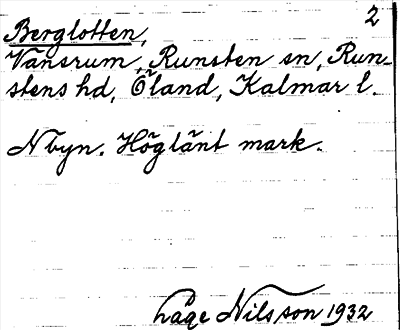 2
Berglotten,
Vånsrum, Runsten sn, Run-
stens hd, Öland, Kalmar l.
N byn. Höglänt mark.
Låge Nilsson 1932